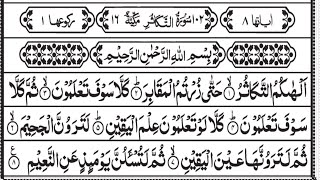 اٰیاتها ٨ ١٠٢ سُوْرَةُ التَّكَاثُرِ مَكِّيَّةٌ ١٦ رکوعها ١
بِسْمِ اللهِ الرَّحْمٰنِ الرَّحِيْمِ
اَلْهٰىكُمُ التَّكَاثُرُ ۙ١ حَتّٰى زُرْتُمُ الْمَقَابِرَ ؕ٢ كَلَّا سَوْفَ تَعْلَمُوْنَ ۙ٣ ثُمَّ كَلَّا
سَوْفَ تَعْلَمُوْنَ ؕ٤ كَلَّا لَوْ تَعْلَمُوْنَ عِلْمَ الْيَقِيْنِ ؕ٥ لَتَرَوُنَّ الْجَحِيْمَ ۙ٦
ثُمَّ لَتَرَوُنَّهَا عَيْنَ الْيَقِيْنِ ۙ٧ ثُمَّ لَتُسْـَٔلُنَّ يَوْمَىِٕذٍ عَنِ النَّعِيْمِ ٨